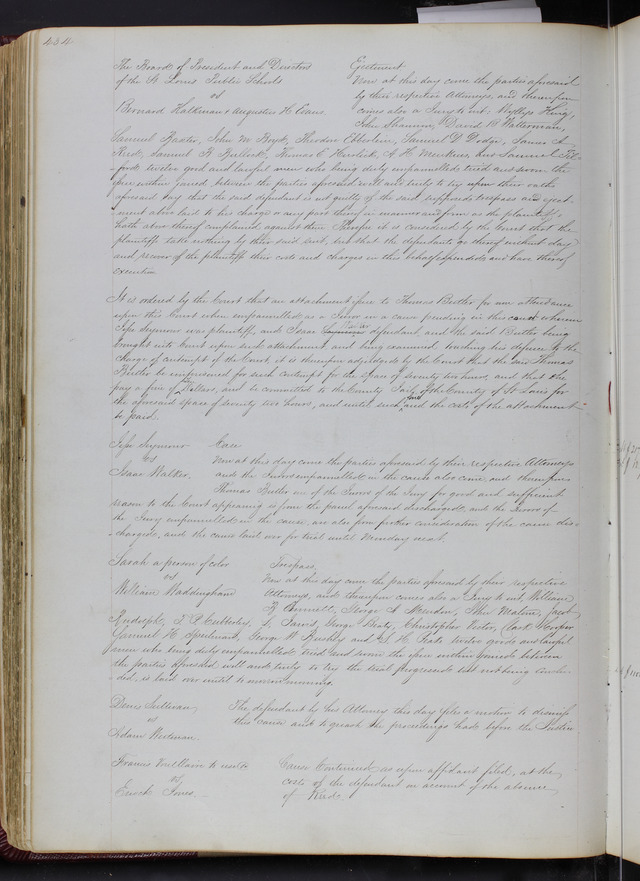 434
The Board of President and Directors Ejectment
of the St Louis Public Schools Now at this day come the parties aforesaid
vs by their respective Attorneys, and thereupon
Bernard Haltman & Augustus H. Evans. comes also a Jury to wit, Wyllys King,
John Shannon, David B Waterman,
Samuel Baxter, John M Boyd, Theodore Samuel D Dodge, James A
Reed, Samuel A Bullock, Thomas E A. H. and Samuel
twelve good and lawful men who being duly empannelled tried and sworn the
issue within joined between the parties aforesaid well and truly to try upon their oaths
aforesaid say that the said defendant is not guilty of the said supposed trespass and eject-
ment above laid to his charge or any part thereof in manner and form as the plaintiff
hath above thereof complained against them Therefore it is considered by the Court that the
plaintiff take nothing by their said suit, but that the defendants go thereof without day
and recover of the plaintiff their costs and charges in this behalf expended and have thereof
execution
It is ordered by the Court that an attachment issue to Thomas Butler for non attendance
upon this Court when empannelled as a Juror in a cause pending in this court wherein
Jesse Seymour was plaintiff and Isaac Walker defendant and the said Butler being
brought into Court upon said attachment and being examined touching his defence to the
charge of contempt of the Court, it is thereupon adjudged by the Court that the said Thomas
Butler be imprisoned for such contempt for the span of seventy two hours, and that he
pay a fine of Dollars, and be committed to the County Jail of the County of St Louis for
the aforesaid space of seventy two hours, and until such fine and the costs of the attachment
be paid.
Jesse Seymour Case
vs Now at this day come the parties aforesaid by their respective Attorneys
Isaac Walker. and the Jurors empannelled in the cause also come, and thereupon
Thomas Butler one of the Jurors of the Jury for good and sufficient
reason to the Court appearing is from the panel aforesaid discharged, and the Jurors of
the Jury empannelled in the cause, are also from further consideration of the cause dis-
-charged, and the cause laid over for trial until Monday next.
Sarah a person of color Trespass,
vs Now at this day come the parties aforesaid by their respective
William Waddingham Attorneys, and thereupon comes also a Jury to wit, William
R. Bennett, George A John Malone, Jacob
Rudolph, J. Jarvis, George Christopher Clark
Samuel H. George W and J. H. twelve good and lawful
men who being duly empannelled tried and sworn the issue within joined between
the parties aforesaid well and truly to try the trial progressed but not being conclu-
-ded, is laid over until tomorrow morning
Denis Sullivan, The defendant by his Attorney this day files a motion to dismiss
vs this cause and to quash the proceedings had before the Justice
Adam
Francis to use &c Cause Continued as upon affidavit filed, at the
vs costs of the defendant on account of the absence
Enoch Jones. of